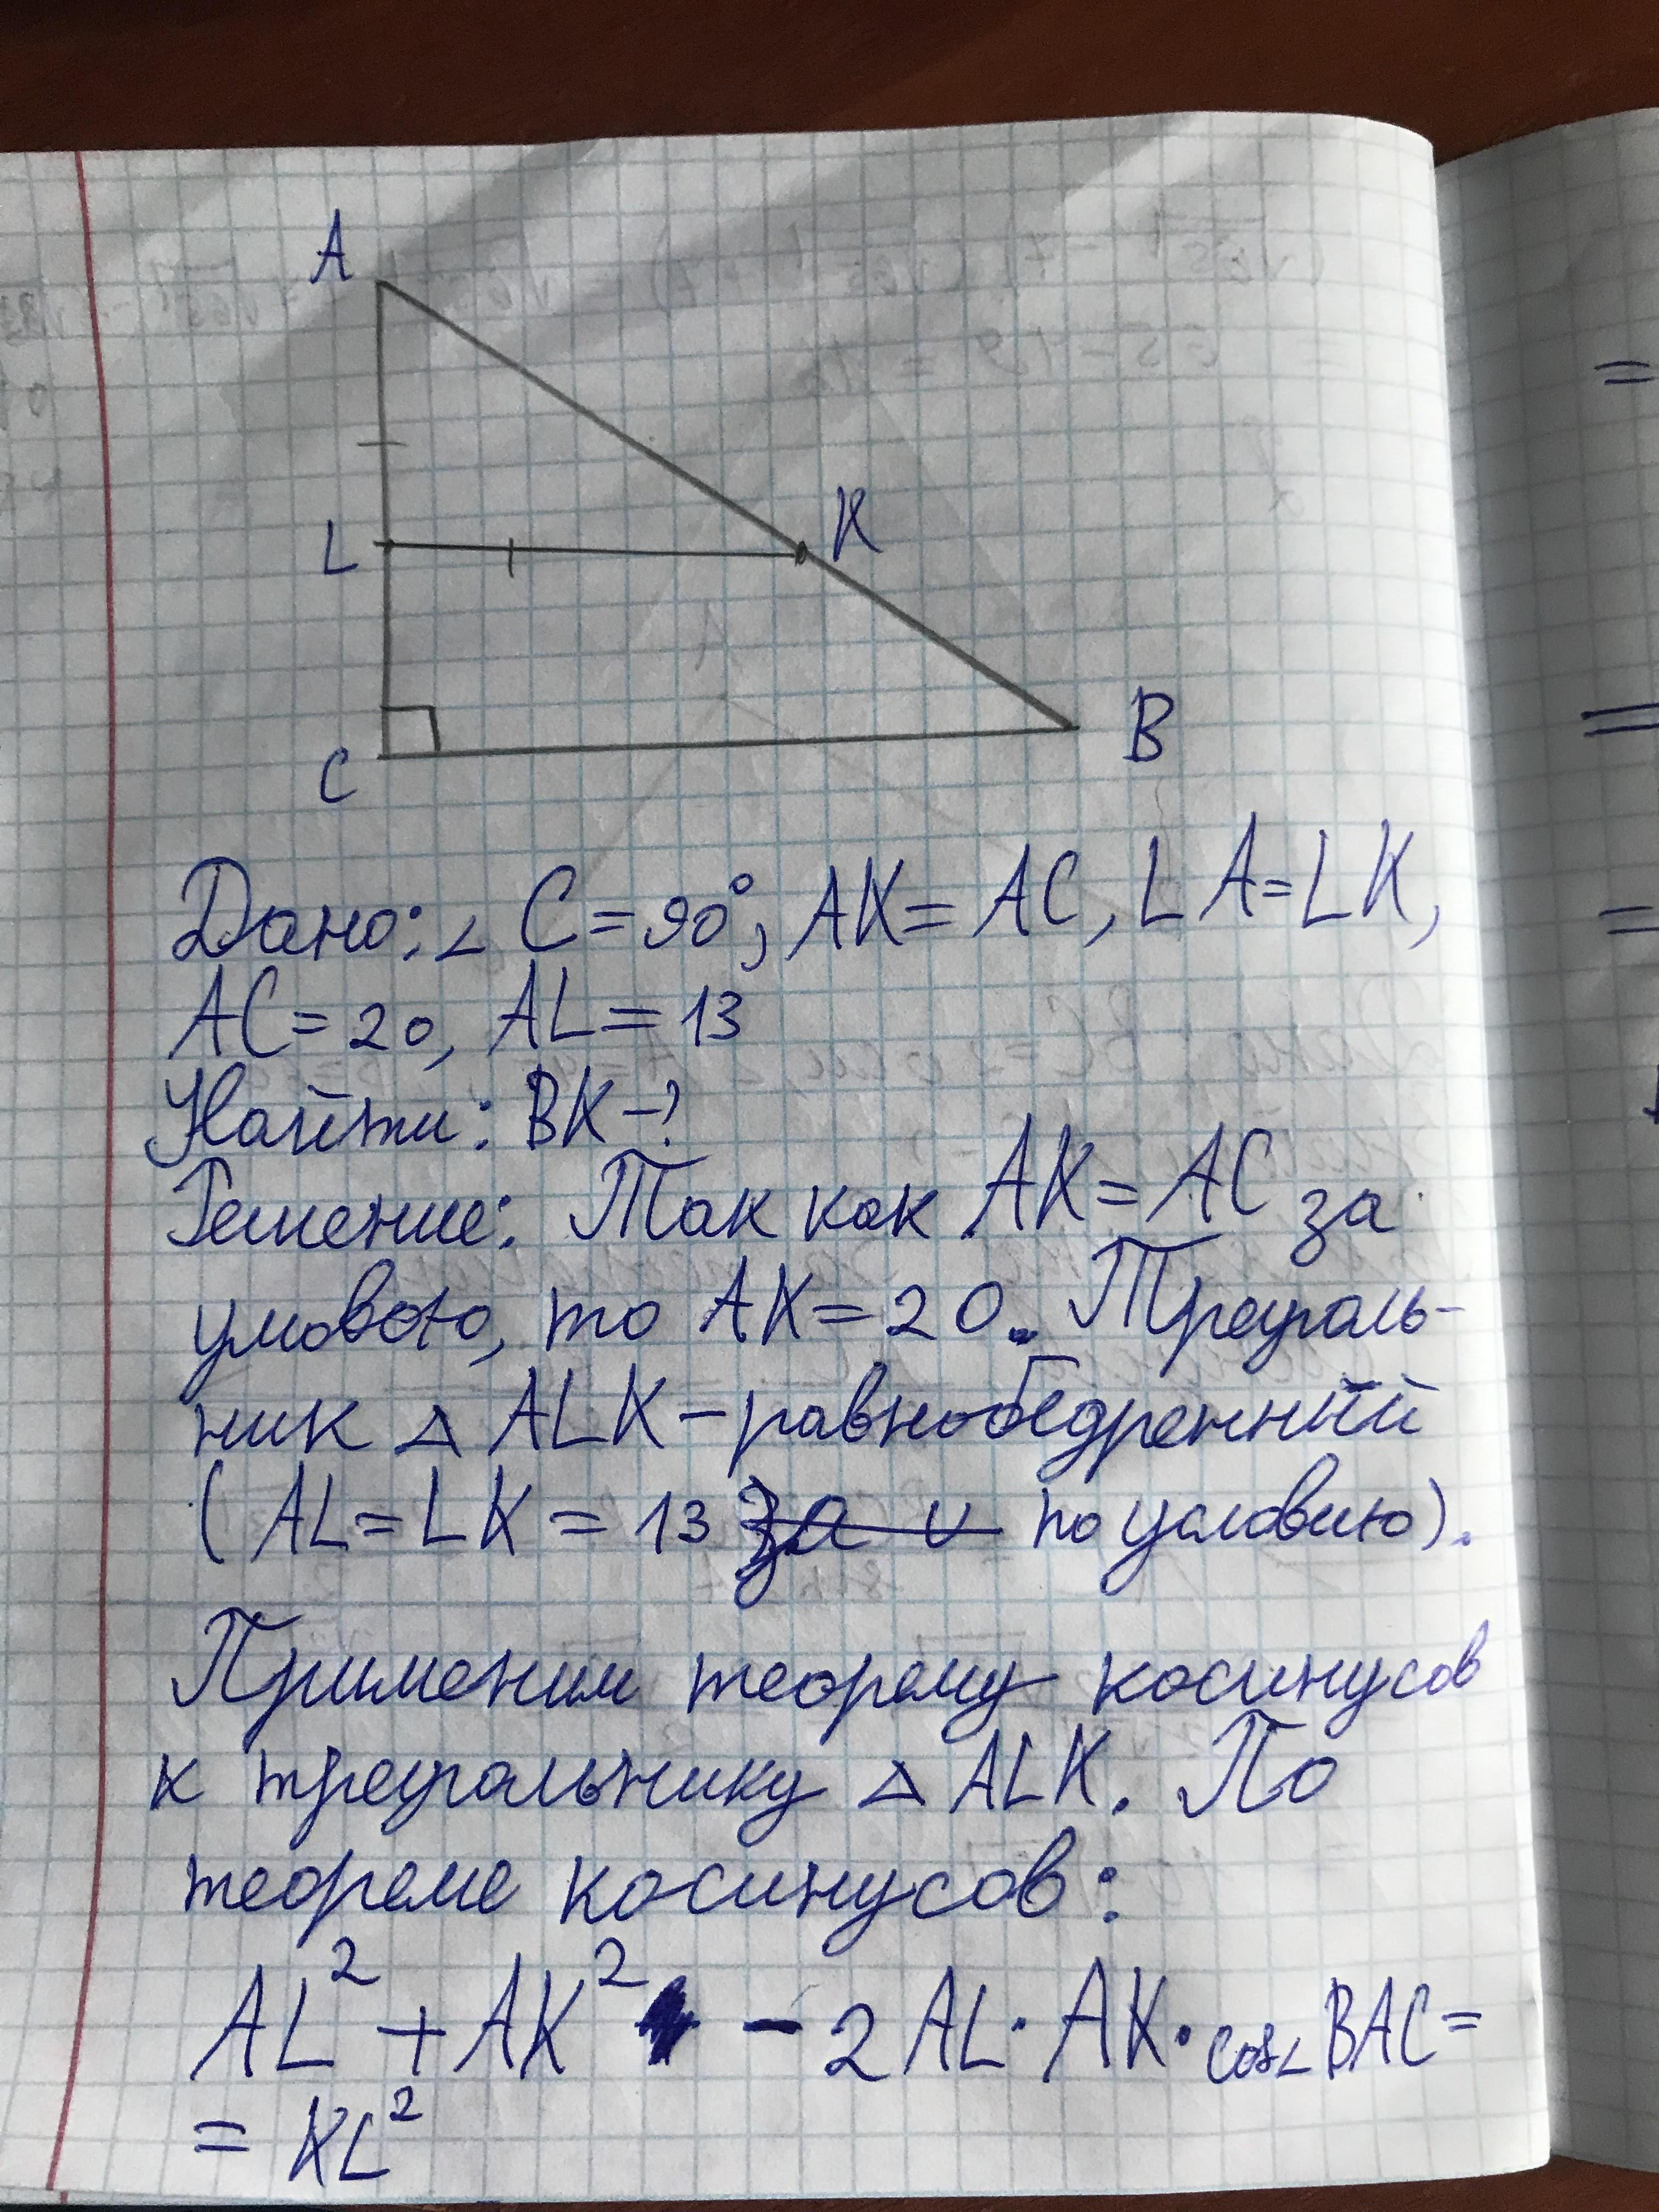 A
L
K
C
B
Дано: ∠ C = 90°; AK = AC, LA = LK,
AC = 20, AL = 13
Найти: BK - ?
Решение: Так как AK = AC за
умовою, то AK = 20. Треуголь-
ник △ ALK - равнобедренный
( AL = LK = 13 за у по условию).
Применим теорему косинусов
к треугольнику △ ALK. По
теореме косинусов:
AL² + AK² - 2 AL · AK · cos∠ BAC =
= KL²